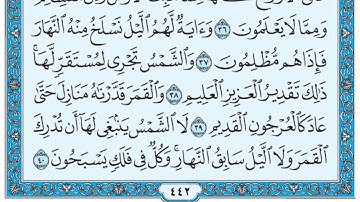 وَمِمَّا لَا يَعْلَمُونَ ٣٦ وَءَايَةٌ لَّهُمُ ٱلَّيْلُ نَسْلَخُ مِنْهُ ٱلنَّهَارَ
فَإِذَا هُم مُّظْلِمُونَ ٣٧ وَٱلشَّمْسُ تَجْرِى لِمُسْتَقَرٍّ لَّهَا ۚ
ذَٰلِكَ تَقْدِيرُ ٱلْعَزِيزِ ٱلْعَلِيمِ ٣٨ وَٱلْقَمَرَ قَدَّرْنَٰهُ مَنَازِلَ حَتَّىٰ
عَادَ كَٱلْعُرْجُونِ ٱلْقَدِيمِ ٣٩ لَا ٱلشَّمْسُ يَنۢبَغِى لَهَآ أَن تُدْرِكَ
ٱلْقَمَرَ وَلَا ٱلَّيْلُ سَابِقُ ٱلنَّهَارِ ۚ وَكُلٌّ فِى فَلَكٍ يَسْبَحُونَ ٤٠
٤٤٢